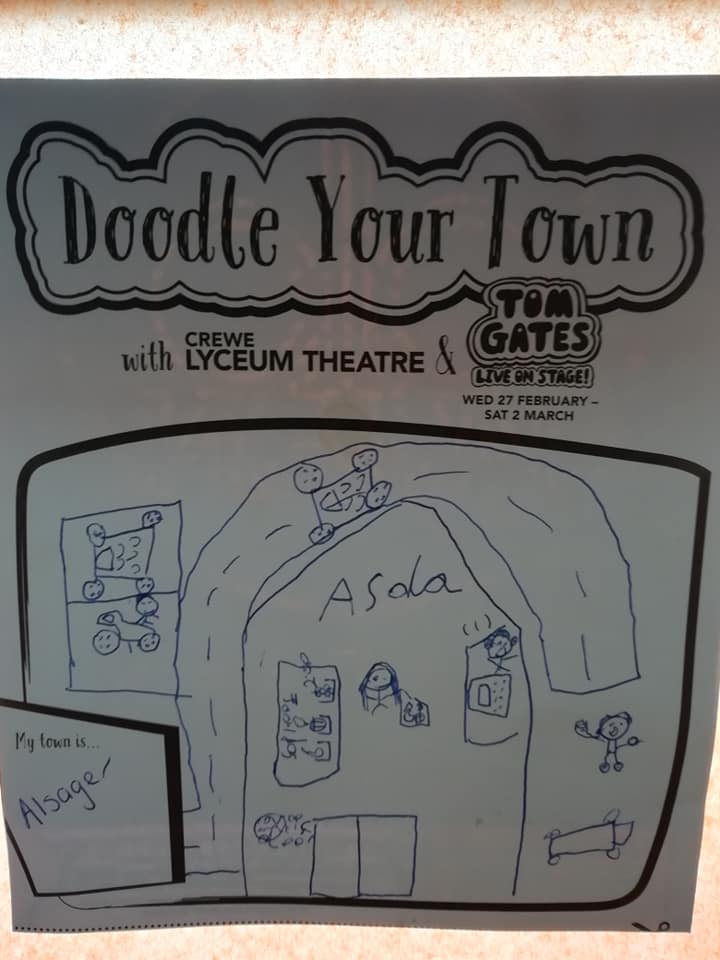 Doodle Your Town
with CREWE LYCEUM THEATRE & TOM GATES
LIVE ON STAGE!
WED 27 FEBRUARY –
SAT 2 MARCH
ASda
My town is...
Alsager